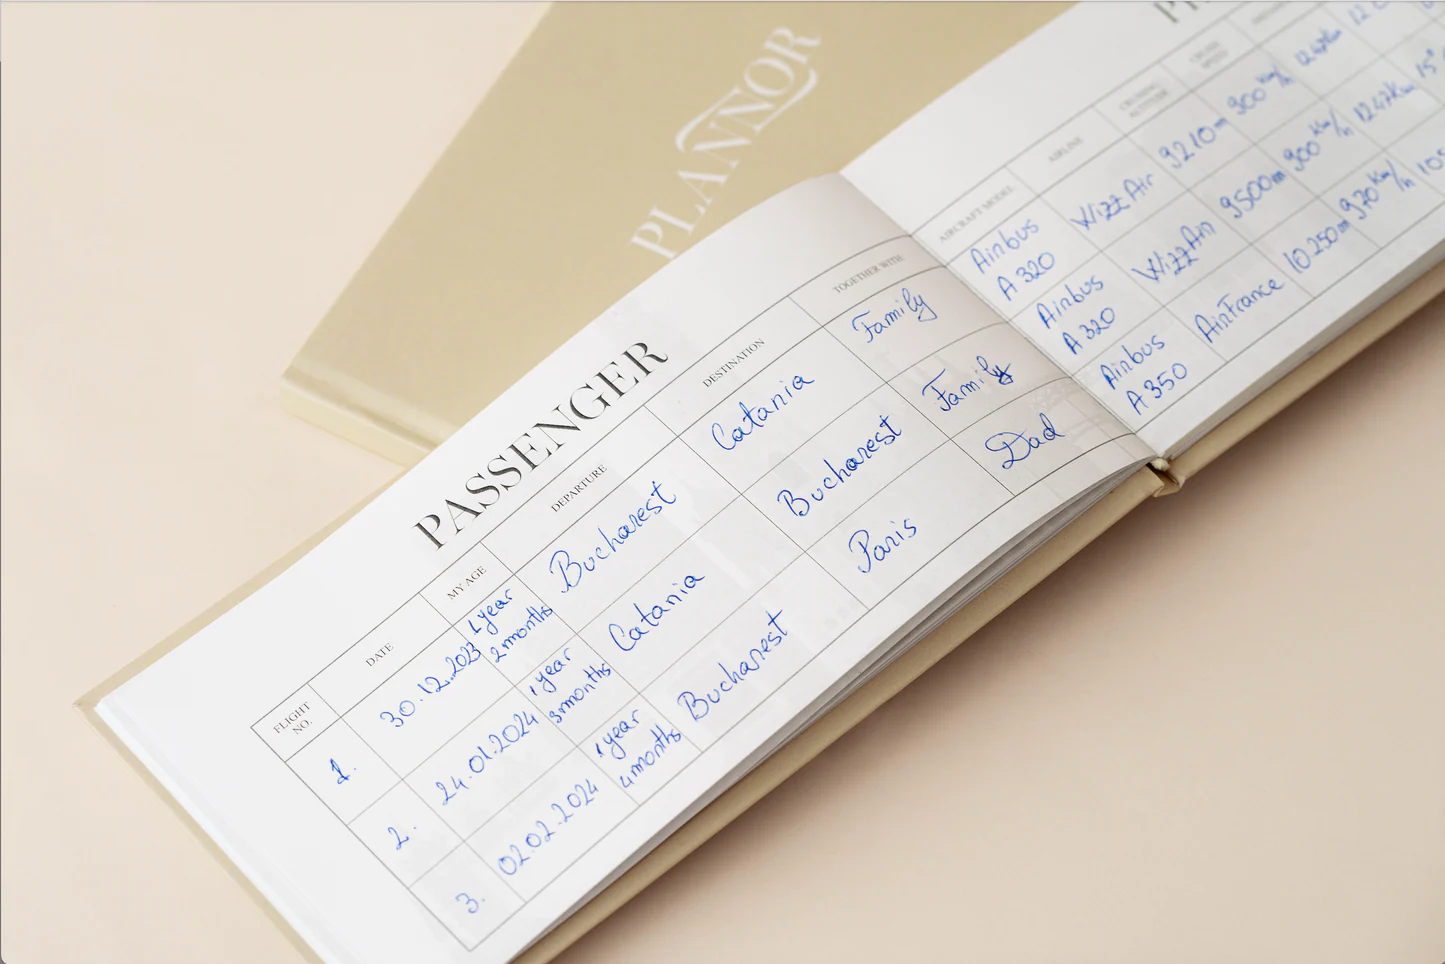 PLANNOR
PASSENGER
FLIGHT NO.
DATE
MY AGE
DEPARTURE
DESTINATION
TOGETHER WITH:
1.
30.12.2023
1 year
2 months
Bucharest
Catania
Family
2.
24.01.2024
1 year
3 months
Catania
Bucharest
Family
3.
02.02.2024
1 year
4 months
Bucharest
Paris
Dad
AIRCRAFT MODEL
AIRLINE
CRUISING ALTITUDE
Airbus
A 320
WizzAir
9210m
900 Km/h
1247Km
Airbus
A 320
WizzAir
9500m
900 Km/h
1247Km
Airbus
A 350
AirFrance
10.250m
970 Km/h